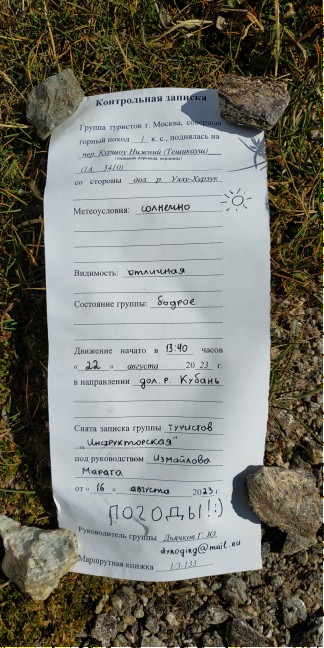 Контрольная записка
Группа туристов г. Москва, совершая
горный поход 1 к. с., поднялась на
пер. Куршоу Нижний (Тешикауш)
(название перевала, вершины)
(1А 3410)
со стороны дол. р. Уллу-Хурзук
Метеоусловия: солнечно
Видимость: отличная
Состояние группы: бодрое
Движение начато в 13:40 часов
« 22 » августа 20 23 г.
в направлении дол. р. Кубань
Снята записка группы туристов
"Инструкторская"
под руководством Измайлова
Марата
от « 16 » августа 2023 г.
ПОГОДЫ!:)
Руководитель группы Дьячков Г. Ю.
Маршрутная книжка 1/3-133